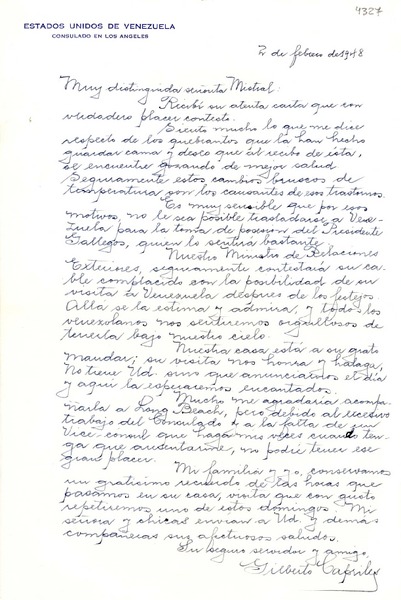 4327
ESTADOS UNIDOS DE VENEZUELA
CONSULADO EN LOS ANGELES
2 de febrero de 1948
Muy distinguida señorita Mistral:
Recibí su atenta carta que con
verdadero placer contesto.
Siento mucho lo que me dice
respecto de los quebrantos que la han hecho
guardar cama y deseo que al recibo de ésta,
se encuentre gozando de mejor salud.
Seguramente estos cambios bruscos de
temperatura son los causantes de esos trastornos.
Es muy sensible que por esos
motivos, no le sea posible trasladarse a Vene-
zuela para la toma de posesion del Presidente
Gallegos, quien lo sentirá bastante.
Nuestro Ministro de Relaciones
Exteriores, seguramente contestará su ca-
ble complacido con la posibilidad de su
visita a Venezuela despues de los festejos.
Allá se la estima y admira, y todos los
venezolanos nos sentiremos orgullosos de
tenerla bajo nuestro cielo.
Nuestra casa está a su grato
mandar; su visita nos honra y halaga.
No tiene Ud. sino que anunciarnos el día
y aquí la esperaremos encantados.
Mucho me agradaría acompa-
ñarla a Long Beach, pero debido al excesivo
trabajo del Consulado y a la falta de un
Vice-consul que haga mis veces cuando ten-
ga que ausentarme, no podré tener ese
gran placer.
Mi familia y yo, conservamos
un gratísimo recuerdo de las horas que
pasamos en su casa, visita que con gusto
repetiremos uno de estos domingos. Mi
señora y chicas envían a Ud. y demás
compañeras sus afectuosos saludos.
Su seguro servidor y amigo,
Gilberto Capriles